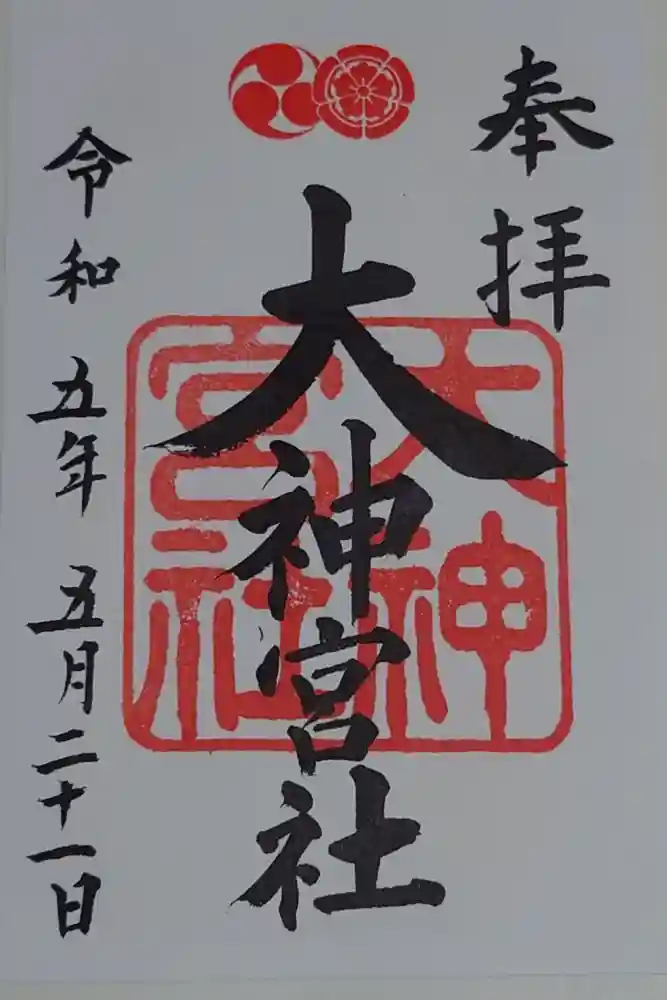 奉拝
大神宮社
大神宮社
令和五年五月二十一日